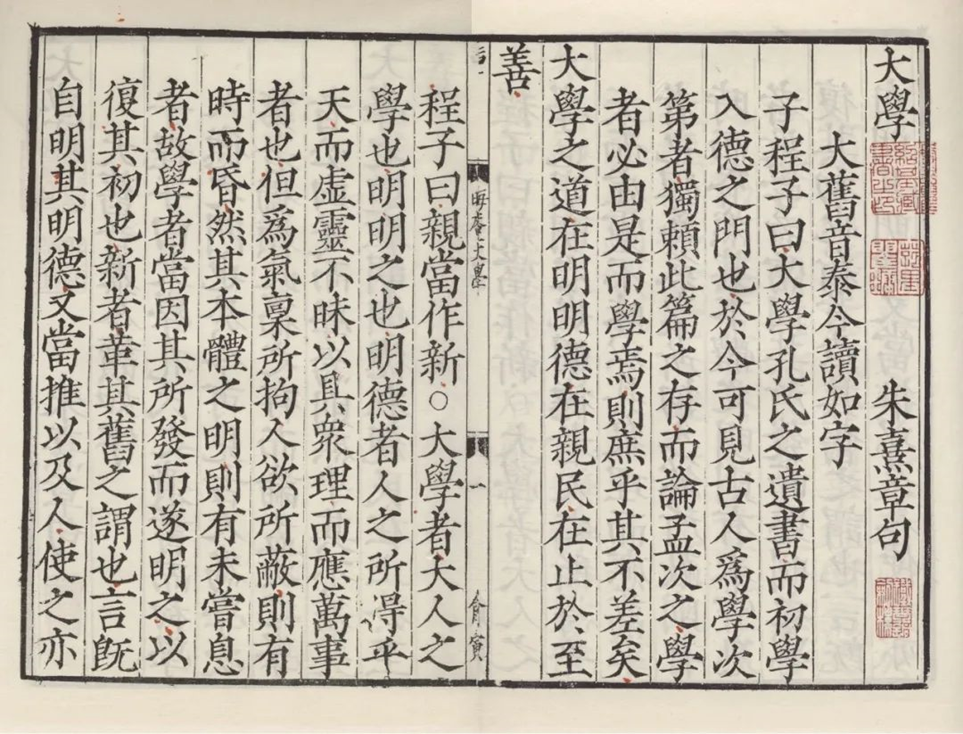 大學 朱熹章句
大舊音泰今讀如字
子程子曰大學孔氏之遺書而初學
入德之門也於今可見古人爲學次
第者獨賴此篇之存而論孟次之學
者必由是而學焉則庶乎其不差矣
大學之道在明明德在親民在止於至
善
晦庵大學
一
程子曰親當作新○大學者大人之
學也明明之也明德者人之所得乎
天而虛靈不昧以具衆理而應萬事
者也但爲氣稟所拘人欲所蔽則有
時而昏然其本體之明則有未嘗息
者故學者當因其所發而遂明之以
復其初也新者革其舊之謂也言旣
自明其明德又當推以及人使之亦